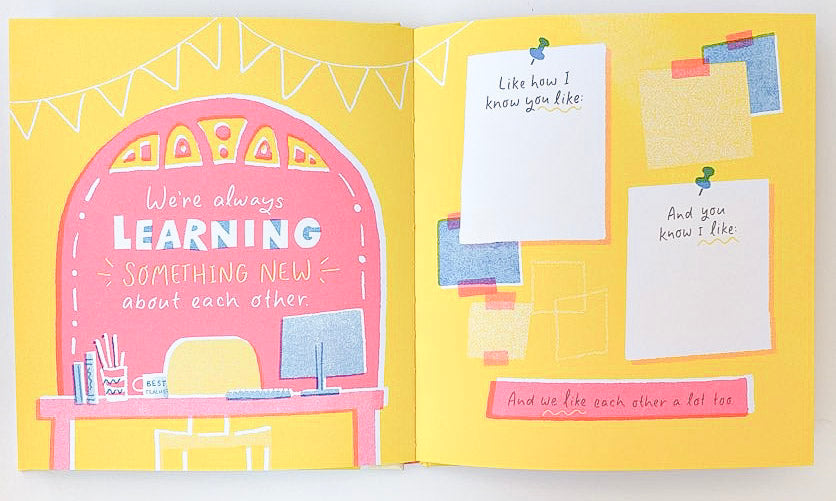 We're always
LEARNING
SOMETHING NEW
about each other.
BEST
TEACHER
Like how I
know you like:
And you
know I like:
And we like each other a lot too